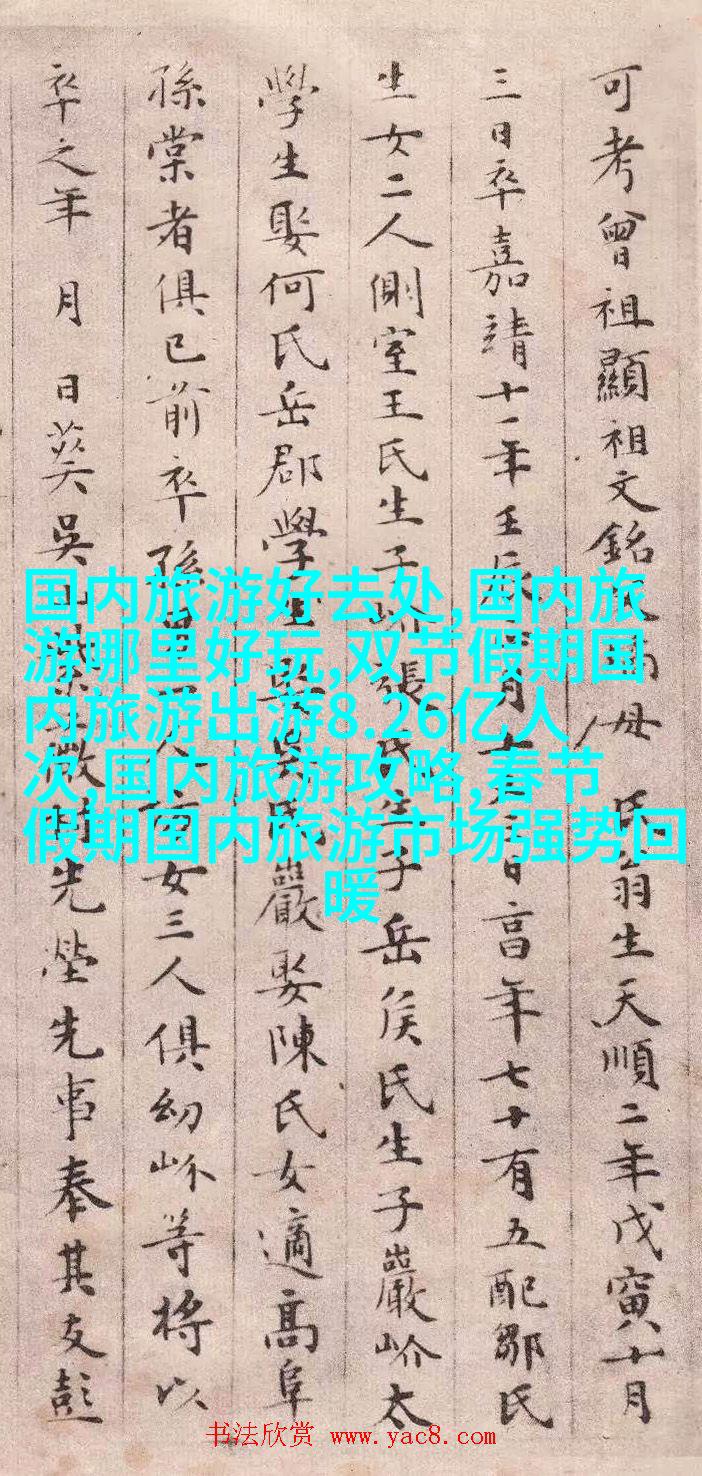 可考曾祖顯祖文銘母氏翁生天順二年戊寅十月
三日卒嘉靖十一年壬辰月十日享年七十有五配鄒氏
生女二人側室王氏生子岕張氏生子岳侯氏生子巖岕太
學生娶何氏岳郡學生娶吳氏巖娶陳氏女適高阜
孫棠者俱已前卒孫男人女三人俱幼岕等將以
卒之年 月 日葬吳山微村先塋先事奉其友彭
国内旅游好去处,国内旅
游哪里好玩,双节假期国
内旅游出游8.26亿人
次,国内旅游攻略,春节
假期国内旅游市场强势回
暖
书法欣赏 www.yac8.com